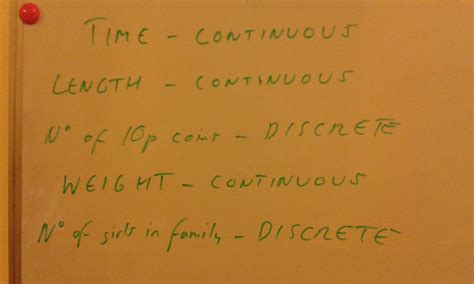 TIME - CONTINUOUS
LENGTH - CONTINUOUS
Nº of 10p coins - DISCRETE
WEIGHT - CONTINUOUS
Nº of girls in family - DISCRETE